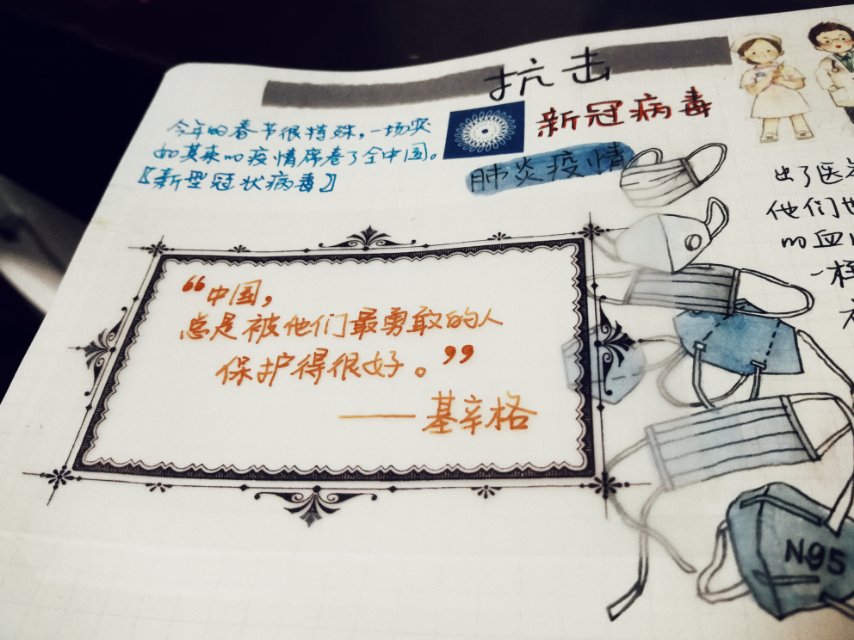 抗击
新冠病毒
肺炎疫情
今年的春节很特殊,一场突
如其来的疫情席卷了全中国。
【新型冠状病毒】
“中国,
总是被他们最勇敢的人
保护得很好。”
——基辛格
出了医
他们也
的血
一样
N95